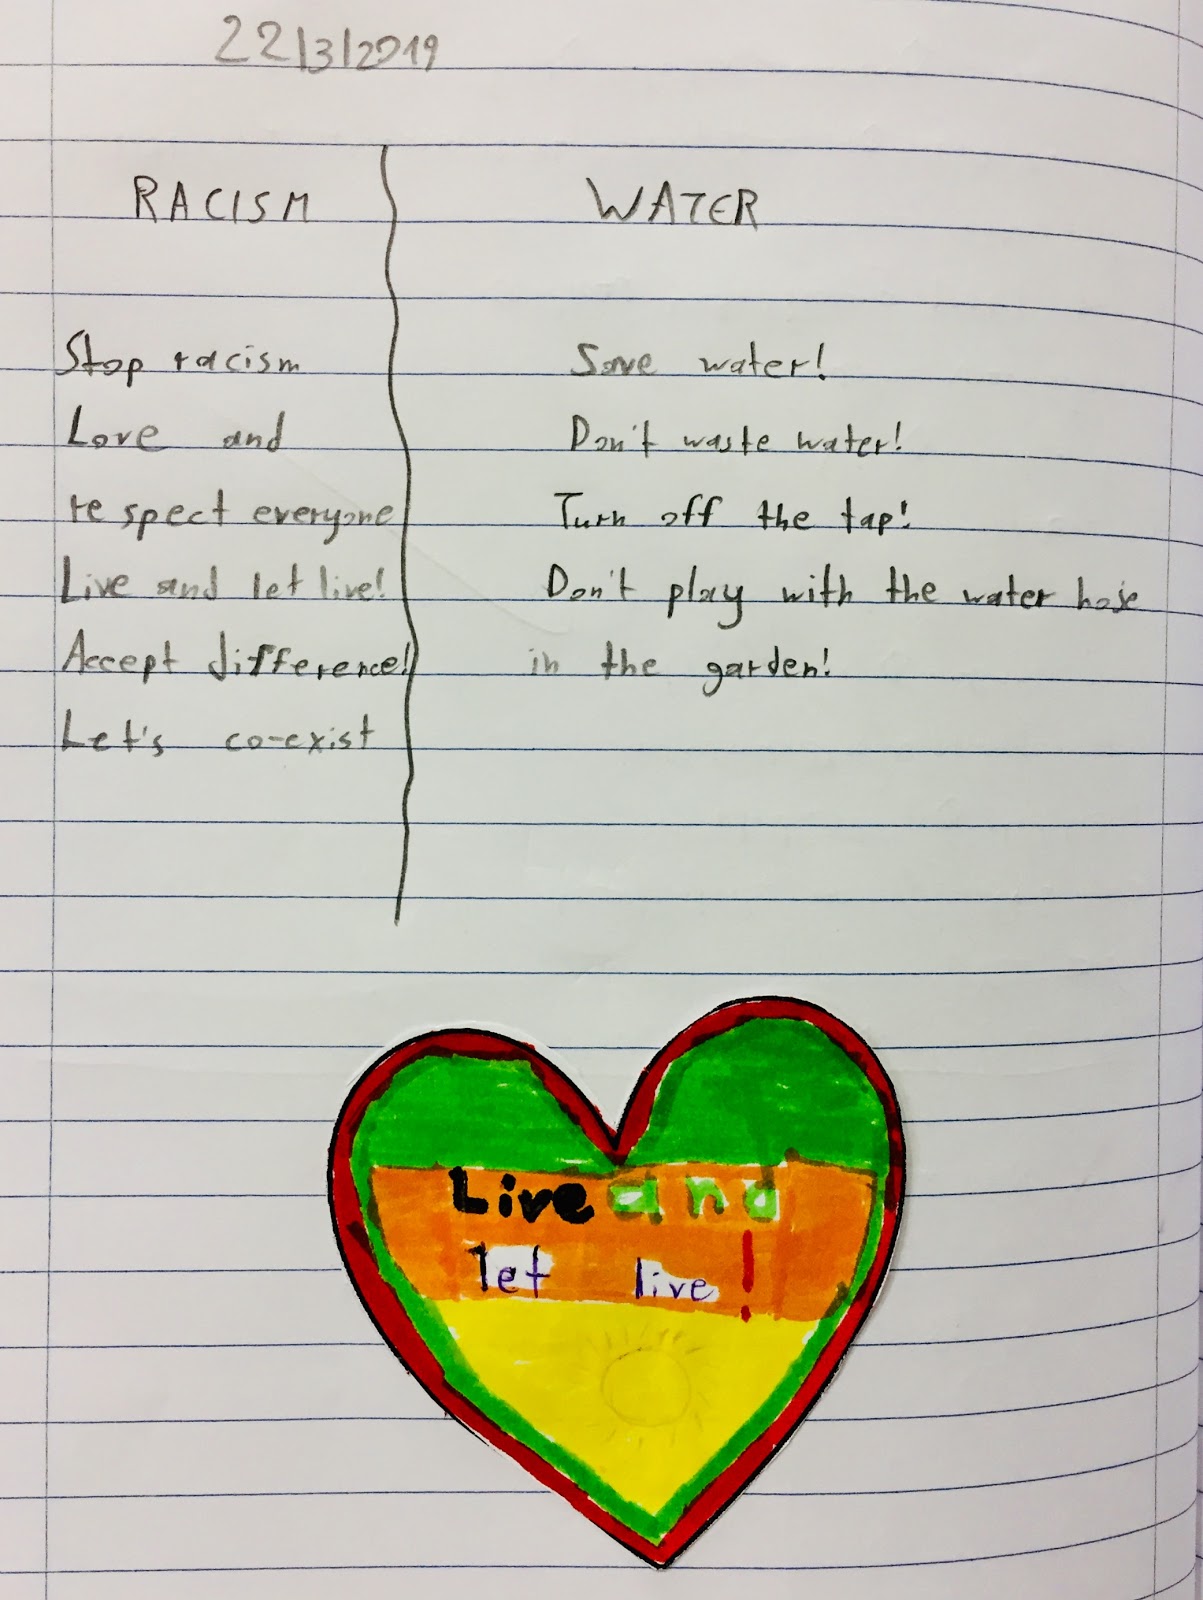 22/3/2019
RACISM
Stop racism
Love and
respect everyone
Live and let live!
Accept difference!
Let's co-exist
WATER
Save water!
Don't waste water!
Turn off the tap!
Don't play with the water hose
in the garden!
Live and
let live!